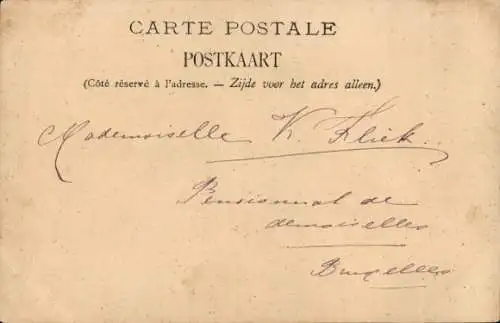 CARTE POSTALE
POSTKAART
(Côté réservé à l'adresse. — Zijde voor het adres alleen.)
Mademoiselle K. Kliek.
Pensionnat de
demoiselles
Bruxelles